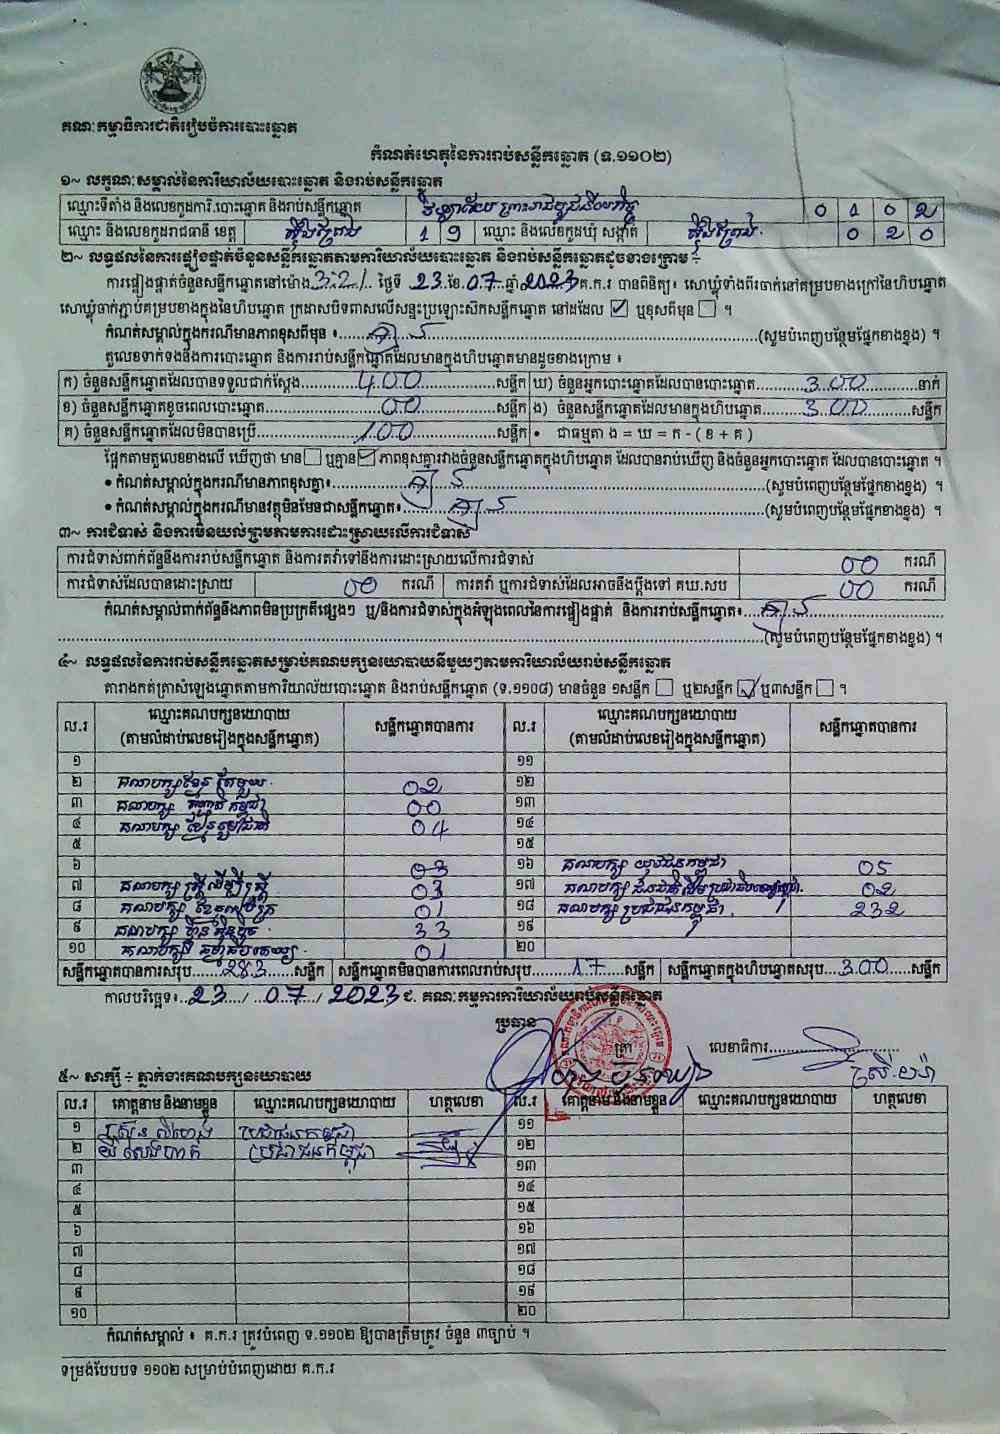 គណៈកម្មាធិការជាតិរៀបចំការបោះឆ្នោត
កំណត់ហេតុនៃការរាប់សន្លឹកឆ្នោត (ទ.១១០២)
១~ លក្ខណៈសម្គាល់នៃការិយាល័យបោះឆ្នោត និងរាប់សន្លឹកឆ្នោត
ឈ្មោះទីតាំង និងលេខកូដការិ.បោះឆ្នោត និងរាប់សន្លឹកឆ្នោត វិទ្យាល័យ ព្រះរាជបូជនីយកិច្ច 0 1 0 2
ឈ្មោះ និងលេខកូដរាជធានី ខេត្ត ស្ទឹងត្រែង 1 9 ឈ្មោះ និងលេខកូដឃុំ សង្កាត់ ស្ទឹងត្រែង 0 2 0
២~ លទ្ធផលនៃការផ្ទៀងផ្ទាត់ចំនួនសន្លឹកឆ្នោតតាមការិយាល័យបោះឆ្នោត និងរាប់សន្លឹកឆ្នោតដូចខាងក្រោម ÷
ការផ្ទៀងផ្ទាត់ចំនួនសន្លឹកឆ្នោតនៅម៉ោង ថ្ងៃទី 23 ខែ 07 ឆ្នាំ 2023 គ.ក.រ បានពិនិត្យ៖ សោឃ្លុំទាំងពីរចាក់នៅគម្របខាងក្រៅនៃហិបឆ្នោត
សោឃ្លុំចាក់ភ្ជាប់គម្របខាងក្នុងនៃហិបឆ្នោត ក្រដាសបិទពាសលើសន្ទះប្រឡោះសិកសន្លឹកឆ្នោត នៅដដែល ☑ ឬខុសពីមុន ☐ ។
កំណត់សម្គាល់ក្នុងករណីមានភាពខុសពីមុន ៖ គ្មាន (សូមបំពេញបន្ថែមផ្នែកខាងខ្នង) ។
តួលេខទាក់ទងនឹងការបោះឆ្នោត និងការរាប់សន្លឹកឆ្នោតដែលមានក្នុងហិបឆ្នោតមានដូចខាងក្រោម ៖
ក) ចំនួនសន្លឹកឆ្នោតដែលបានទទួលជាក់ស្ដែង 400 សន្លឹក ឃ) ចំនួនអ្នកបោះឆ្នោតដែលបានបោះឆ្នោត 300 នាក់
ខ) ចំនួនសន្លឹកឆ្នោតខូចពេលបោះឆ្នោត 00 សន្លឹក ង) ចំនួនសន្លឹកឆ្នោតដែលមានក្នុងហិបឆ្នោត 300 សន្លឹក
គ) ចំនួនសន្លឹកឆ្នោតដែលមិនបានប្រើ 100 សន្លឹក • ជាធម្មតា ង = ឃ = ក - ( ខ + គ )
ផ្អែកតាមតួលេខខាងលើ ឃើញថា មាន ☐ ឬគ្មាន ☑ ភាពខុសគ្នារវាងចំនួនសន្លឹកឆ្នោតក្នុងហិបឆ្នោត ដែលបានរាប់ឃើញ និងចំនួនអ្នកបោះឆ្នោត ដែលបានបោះឆ្នោត ។
• កំណត់សម្គាល់ក្នុងករណីមានភាពខុសគ្នា៖ គ្មាន (សូមបំពេញបន្ថែមផ្នែកខាងខ្នង) ។
• កំណត់សម្គាល់ក្នុងករណីមានវត្ថុមិនមែនជាសន្លឹកឆ្នោត៖ គ្មាន (សូមបំពេញបន្ថែមផ្នែកខាងខ្នង) ។
៣~ ការជំទាស់ និងការមិនយល់ព្រមតាមការដោះស្រាយលើការជំទាស់
ការជំទាស់ពាក់ព័ន្ធនឹងការរាប់សន្លឹកឆ្នោត និងការតវ៉ាទៅនឹងការដោះស្រាយលើការជំទាស់ 00 ករណី
ការជំទាស់ដែលបានដោះស្រាយ 00 ករណី ការតវ៉ា ឬការជំទាស់ដែលអាចនឹងប្ដឹងទៅ គឃ.សប 00 ករណី
កំណត់សម្គាល់ពាក់ព័ន្ធនឹងភាពមិនប្រក្រតីផ្សេងៗ ឬ/និងការជំទាស់ក្នុងអំឡុងពេលនៃការផ្ទៀងផ្ទាត់ និងការរាប់សន្លឹកឆ្នោត៖ គ្មាន
(សូមបំពេញបន្ថែមផ្នែកខាងខ្នង) ។
៤~ លទ្ធផលនៃការរាប់សន្លឹកឆ្នោតសម្រាប់គណបក្សនយោបាយនីមួយៗតាមការិយាល័យរាប់សន្លឹកឆ្នោត
តារាងកត់ត្រាសំឡេងឆ្នោតតាមការិយាល័យបោះឆ្នោត និងរាប់សន្លឹកឆ្នោត (ទ.១១០៨) មានចំនួន ១សន្លឹក ☐ ឬ២សន្លឹក ☑ ឬ៣សន្លឹក ☐ ។
ល.រ ឈ្មោះគណបក្សនយោបាយ (តាមលំដាប់លេខរៀងក្នុងសន្លឹកឆ្នោត) សន្លឹកឆ្នោតបានការ ល.រ ឈ្មោះគណបក្សនយោបាយ (តាមលំដាប់លេខរៀងក្នុងសន្លឹកឆ្នោត) សន្លឹកឆ្នោតបានការ
១ ១១
២ គណបក្សខ្មែរតែមួយ 02 ១២
៣ គណបក្ស កម្ពុជា 00 ១៣
៤ គណបក្ស ខ្មែររួបរួមជាតិ 04 ១៤
៥ ១៥
៦ 03 ១៦ គណបក្ស យុវជនកម្ពុជា 05
៧ គណបក្ស ស្ត្រីដើម្បីស្ត្រី 03 ១៧ គណបក្ស ជនជាតិដើមប្រជាធិបតេយ្យកម្ពុជា 02
៨ គណបក្ស ខ្មែរ 01 ១៨ គណបក្ស ប្រជាជនកម្ពុជា 232
៩ គណបក្ស ហ៊្វុនស៊ិនប៉ិច 33 ១៩
១០ គណបក្ស 01 ២០
សន្លឹកឆ្នោតបានការសរុប 283 សន្លឹក សន្លឹកឆ្នោតមិនបានការពេលរាប់សរុប 17 សន្លឹក សន្លឹកឆ្នោតក្នុងហិបឆ្នោតសរុប 300 សន្លឹក
កាលបរិច្ឆេទ៖ 23 / 07 / 2023 ៩. គណៈកម្មការការិយាល័យរាប់សន្លឹកឆ្នោត
ប្រធាន
ត្រា លេខាធិការ
៥~ សាក្សី ÷ ភ្នាក់ងារគណបក្សនយោបាយ
ល.រ គោត្តនាម និងនាមខ្លួន ឈ្មោះគណបក្សនយោបាយ ហត្ថលេខា ល.រ គោត្តនាម និងនាមខ្លួន ឈ្មោះគណបក្សនយោបាយ ហត្ថលេខា
១ ប្រជាជនកម្ពុជា ១១
២ ប្រជាជនកម្ពុជា ១២
៣ ១៣
៤ ១៤
៥ ១៥
៦ ១៦
៧ ១៧
៨ ១៨
៩ ១៩
១០ ២០
កំណត់សម្គាល់ ៖ គ.ក.រ ត្រូវបំពេញ ទ.១១០២ ឱ្យបានត្រឹមត្រូវ ចំនួន ៣ច្បាប់ ។
ទម្រង់បែបបទ ១១០២ សម្រាប់បំពេញដោយ គ.ក.រ